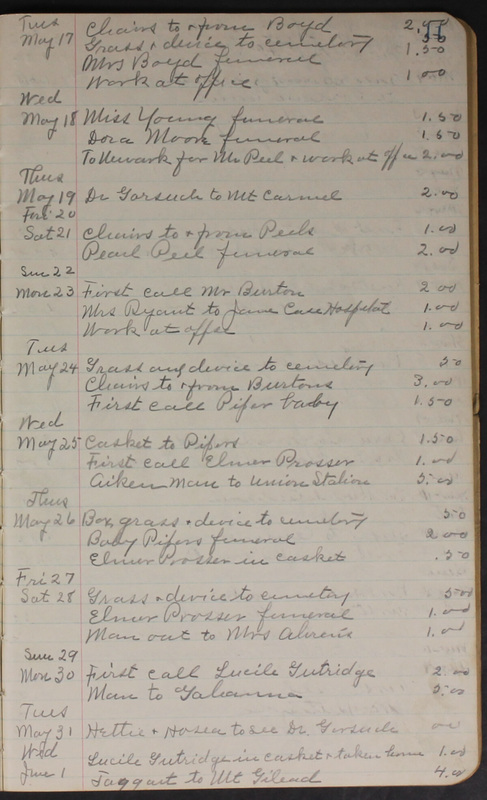 Tues Chairs to + from Boyd 2.00
May 17 Grass + device to cemetery 50
Mrs Boyd funeral 1.50
Work at office 1 00
Wed
May 18 Miss Young funeral 1.50
Dora Moore funeral 1.50
To Newark for Mr Peel + work at office 2.00
Thus
May 19 Dr Gorsuch to Mt Carmel 2.00
Fri 20
Sat 21 Chairs to + from Peels 1.00
Pearl Peel funeral 2.00
Sun 22
Mon 23 First call Mr Burton 2 00
Mrs Ryant to Jane Case Hospital 1.00
Work at office 1.00
Tues
May 24 Grass and device to cemetery 50
Chairs to + from Burtons 3.00
First call Pifer baby 1.50
Wed
May 25 Casket to Pifers 1.50
First call Elmer Prosser 1.00
Aiken Man to Union Station 5.00
Thus
May 26 Box, grass + device to cemetery 50
Baby Pifers funeral 2.00
Elmer Prosser in casket .50
Fri 27
Sat 28 Grass + device to cemetery 50
Elmer Prosser funeral 1.00
Man out to Mrs Ahrens 1.00
Sun 29
Mon 30 First call Lucile Gutridge 2.00
Man to Gahanna 5.00
Tues
May 31 Hettie + Hosea to see Dr Gorsuch 00
Wed Lucile Gutridge in casket + taken home 1.00
June 1 Taggart to Mt Gilead 4.00